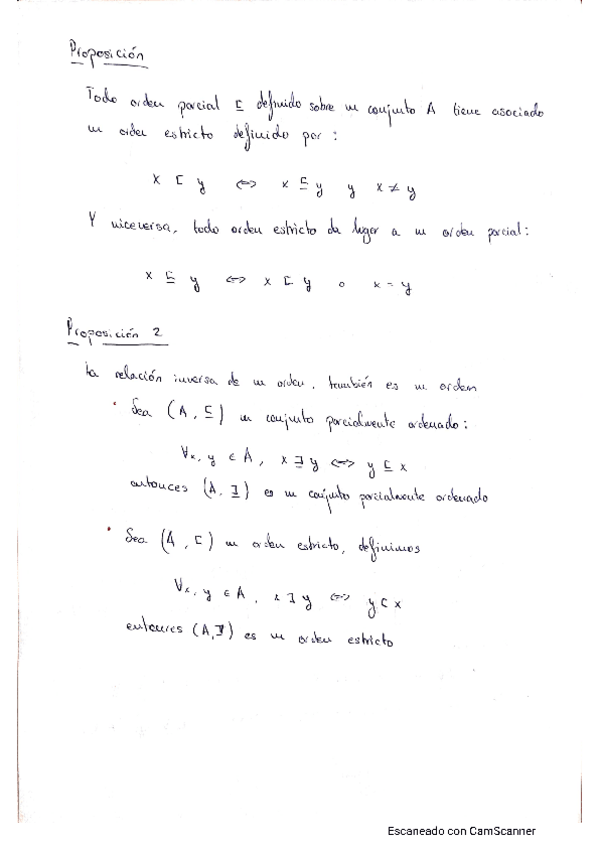 Proposición
Todo orden parcial ⊑ definido sobre un conjunto A tiene asociado
un orden estricto definido por:
x ⊏ y ⇔ x ⊑ y y x ≠ y
Y viceversa, todo orden estricto da lugar a un orden parcial:
x ⊑ y ⇔ x ⊏ y o x = y
Proposición 2
La relación inversa de un orden, también es un orden
· Sea (A, ⊑) un conjunto parcialmente ordenado:
∀x, y ∈ A, x ⊒ y ⇔ y ⊑ x
entonces (A, ⊒) es un conjunto parcialmente ordenado
· Sea (A, ⊏) un orden estricto, definimos
∀x, y ∈ A, x ⊐ y ⇔ y ⊏ x
entonces (A, ⊐) es un orden estricto
Escaneado con CamScanner